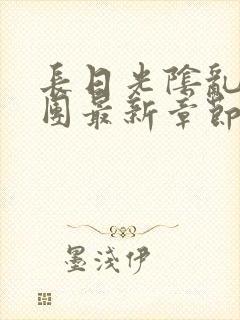 長日光陰亂
團最新章節
墨淺伊